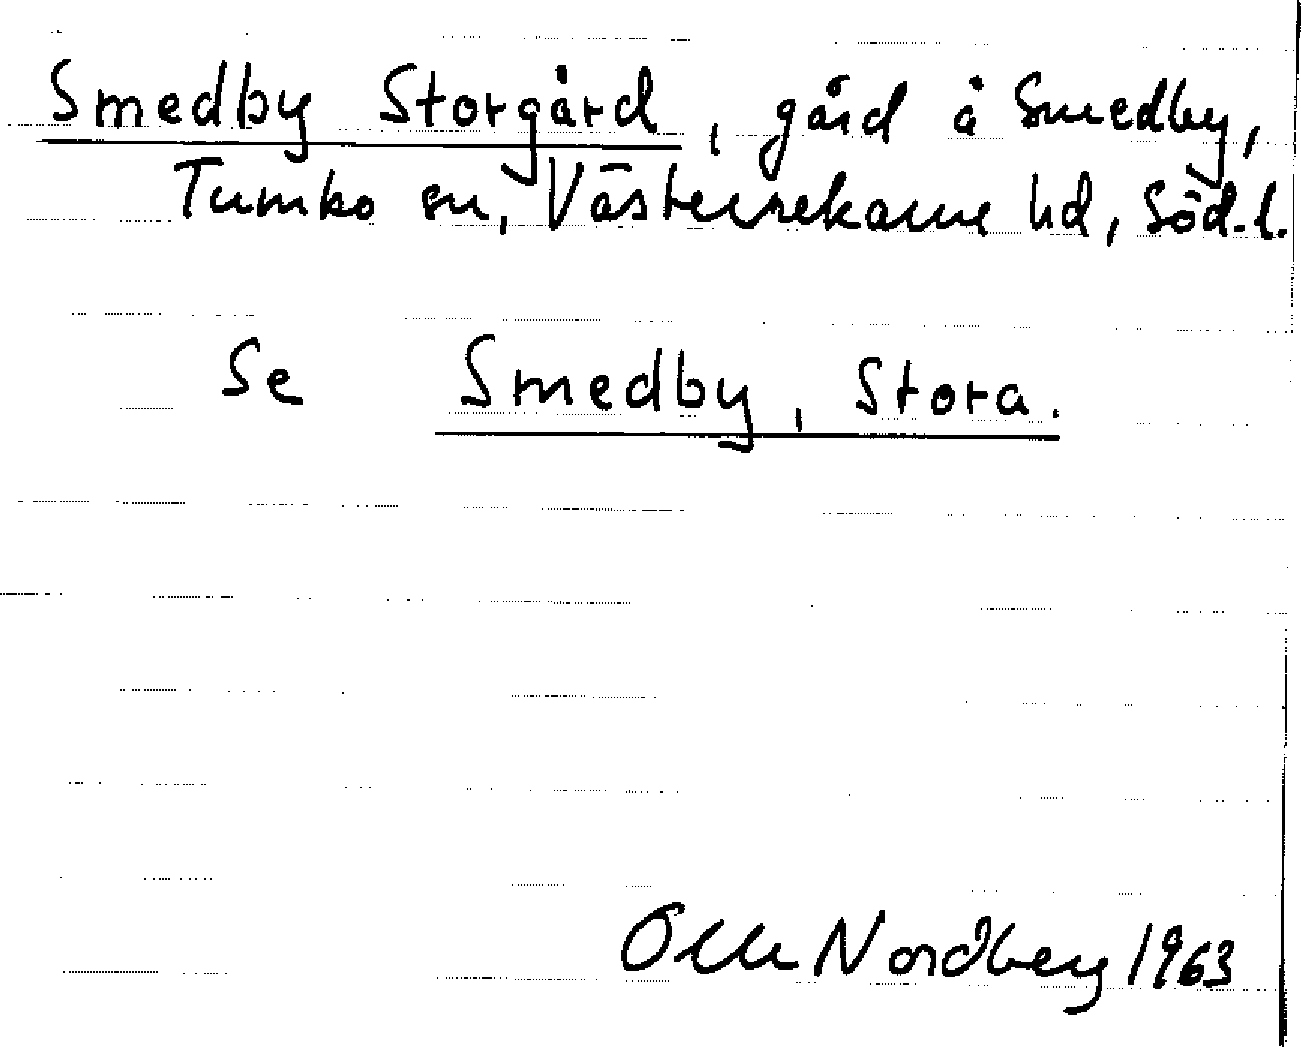 Smedby Storgård, gård å Smedby,
Tumbo sn, Västerrekarne hd, Söd.l.
Se Smedby, Stora.
Olle Nordberg 1963